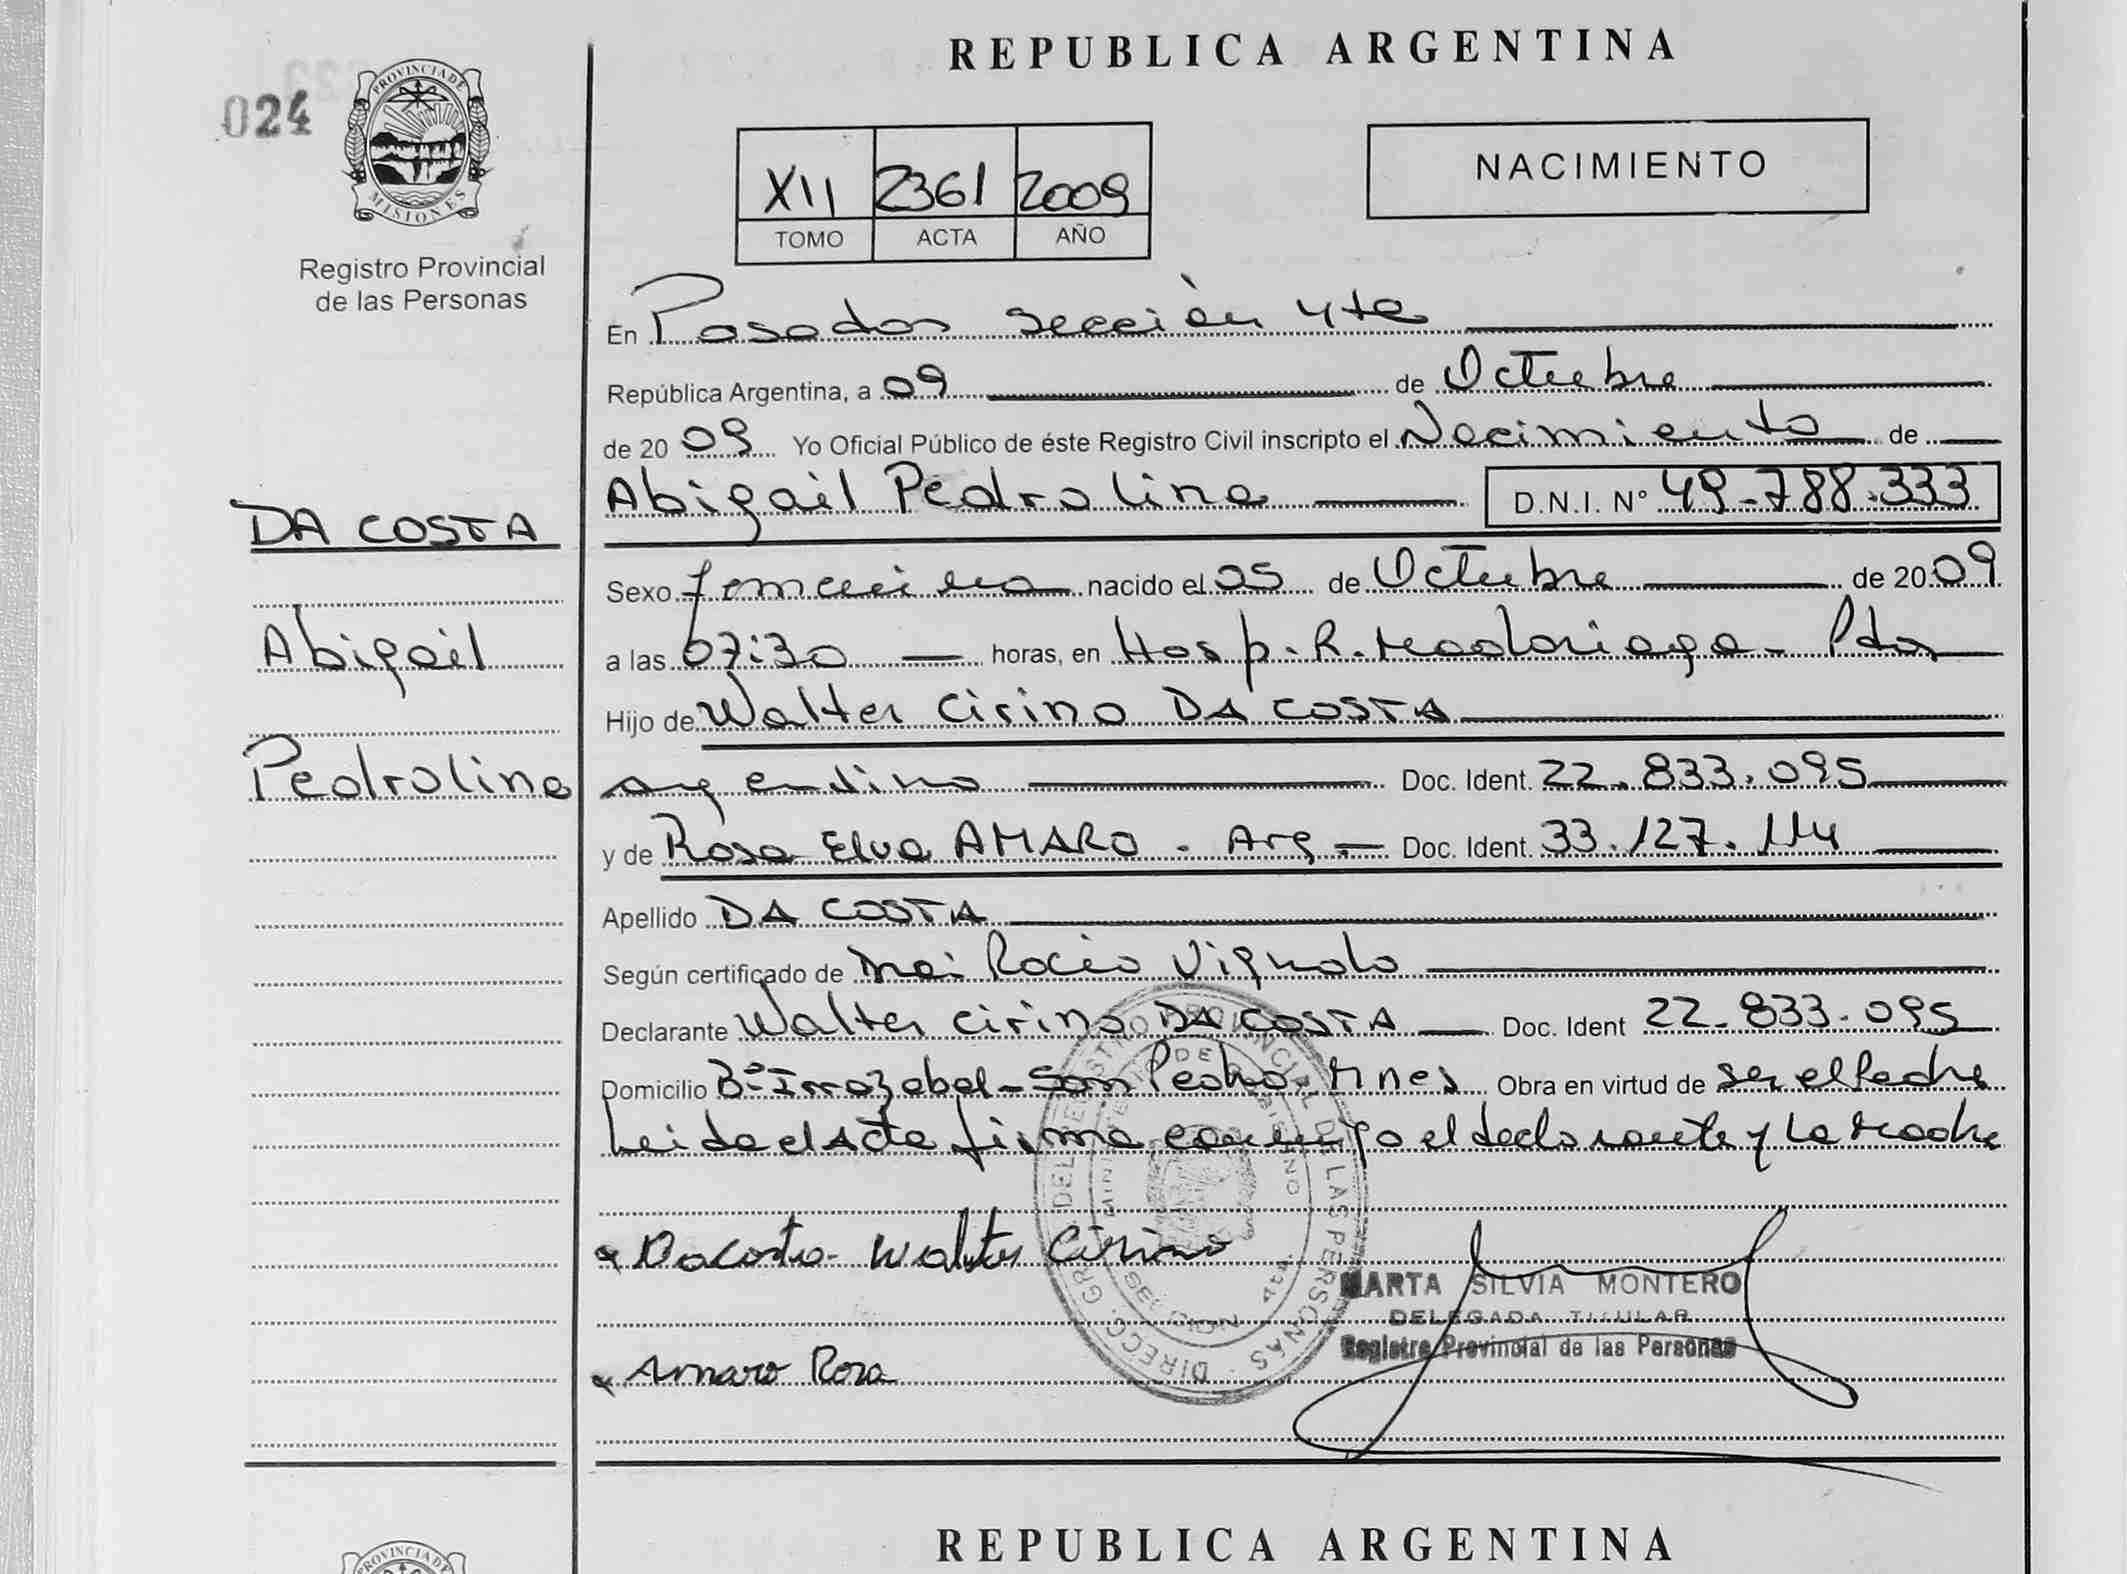 REPUBLICA ARGENTINA
024
PROVINCIA DE
MISIONES
Registro Provincial
de las Personas
NACIMIENTO
XII 2361 2009
TOMO ACTA AÑO
En Posadas sección 4ta
República Argentina, a 09 de Octubre
de 2009 Yo Oficial Público de éste Registro Civil inscripto el Nacimiento de
Abigail Pedrolina D.N.I. Nº 49.788.333
DA COSTA
Abigail
Pedrolina
Sexo femenino nacido el 05 de Octubre de 2009
a las 07:30 horas, en Hosp. R. Madariaga - Pdas
Hijo de Walter Cirino DA COSTA
argentino Doc. Ident. 22.833.095
y de Rosa Elva AMARO - Arg. Doc. Ident. 33.127.114
Apellido DA COSTA
Según certificado de Rocio Vignolo
Declarante Walter Cirino DA COSTA Doc. Ident 22.833.095
Domicilio Bº Irrazabal - San Pedro - Mnes Obra en virtud de ser el Padre
Leida el Acta firma conmigo el declarante y la Madre
Da Costa Walter Cirino
MARTA SILVIA MONTERO
DELEGADA TITULAR
Registro Provincial de las Personas
Amaro Rosa
REPUBLICA ARGENTINA
PROVINCIA DE